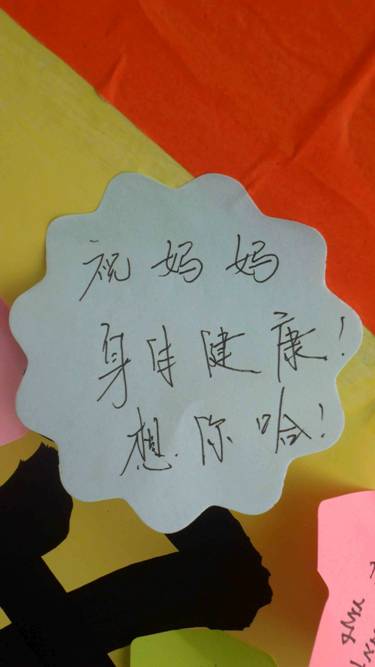 祝妈妈
身体健康!
想你哈!